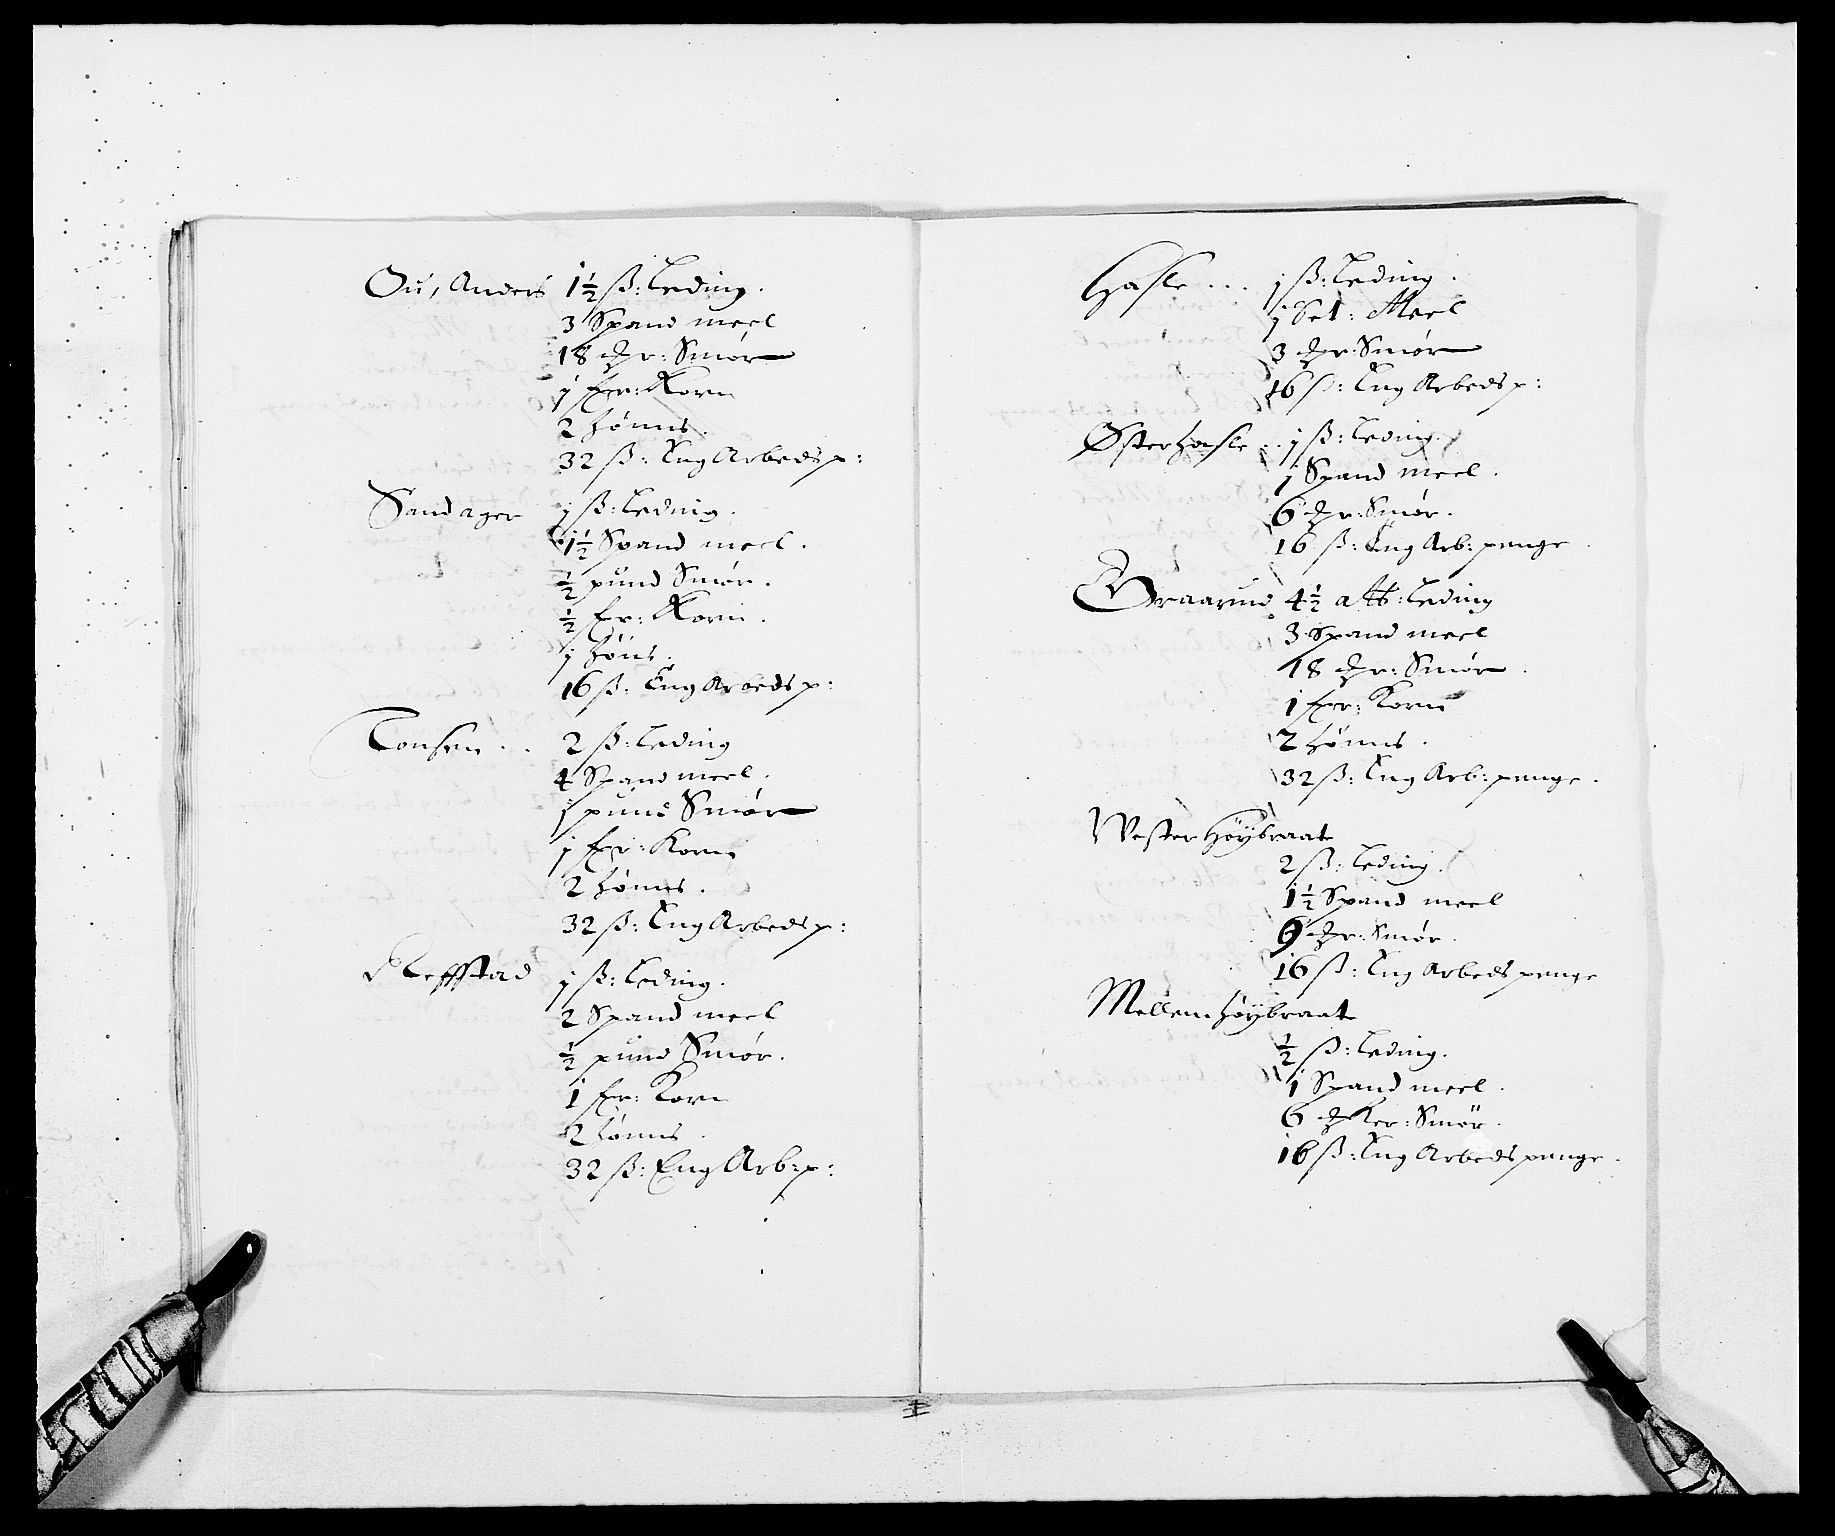 Ou, Anders 1½ ß: Leding.
3 Spand meel
18 mr: Smør
j fr: Korn
2 hønns.
32 ß: Eng Arbeds p:
Sandager j ß: Leding.
1½ Spand meel.
½ pund Smør.
½ fr: Korn.
j høns.
16 ß: Eng Arbeds p:
Tonsen . . 2 ß: Leding
4 Spand meel.
j pund Smør
j fr: Korn
2 hønns.
32 ß: Eng Arbeds p:
Refstad j ß: Leding.
2 Spand meel
½ pund Smør.
1 fr: Korn
2 hønns.
32 ß: Eng Arb: p:
Hasle . . . j ß: Leding.
j Set: Meel
3 mr: Smør
16 ß: Eng Arbeds p:
Østerhasle . . j ß: Leding.
j Spand meel.
6 mr: Smør.
16 ß: Eng Arb: penge
Braarud 4½ alb: Leding
3 Spand meel
18 mr: Smør.
1 fr: Korn
2 hønns.
32 ß: Eng Arb: penge.
Wester Høÿbraat
2 ß: Leding.
1½ Spand meel
9 mr: Smør.
16 ß: Eng Arbeds penge
Mellem høÿbraat
½ ß: Leding.
1 Spand meel.
6 mker: Smør.
16 ß: Eng Arbeds penge.